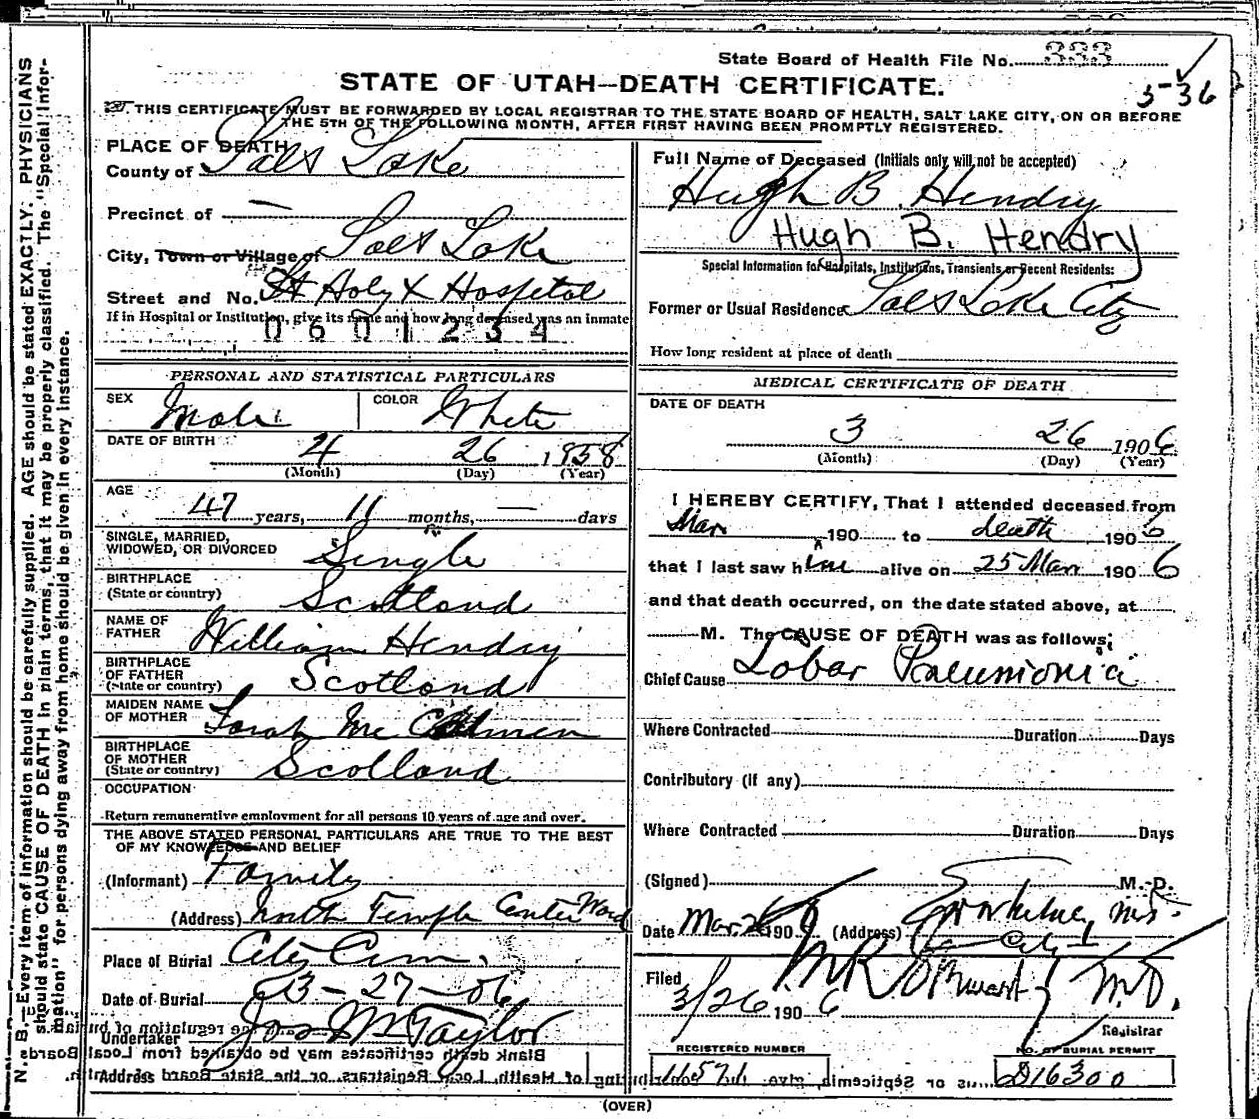 State Board of Health File No. 333
5-36
STATE OF UTAH—DEATH CERTIFICATE.
THIS CERTIFICATE MUST BE FORWARDED BY LOCAL REGISTRAR TO THE STATE BOARD OF HEALTH, SALT LAKE CITY, ON OR BEFORE
THE 5TH OF THE FOLLOWING MONTH, AFTER FIRST HAVING BEEN PROMPTLY REGISTERED.
N. B.—Every item of information should be carefully supplied. AGE should be stated EXACTLY. PHYSICIANS
should state CAUSE OF DEATH in plain terms, that it may be properly classified. The "Special Infor-
mation" for persons dying away from home should be given in every instance.
PLACE OF DEATH
County of Salt Lake
Precinct of —
City, Town or Village of Salt Lake
Street and No. St Holy X Hospital
If in Hospital or Institution, give its name and how long deceased was an inmate
0601234
PERSONAL AND STATISTICAL PARTICULARS
SEX Male COLOR White
DATE OF BIRTH 4 26 1858
(Month) (Day) (Year)
AGE
47 years, 11 months, — days
SINGLE, MARRIED,
WIDOWED, OR DIVORCED Single
BIRTHPLACE
(State or country) Scotland
NAME OF
FATHER William Hendry
BIRTHPLACE
OF FATHER
(State or country) Scotland
MAIDEN NAME
OF MOTHER Sarah Mc
BIRTHPLACE
OF MOTHER
(State or country) Scotland
OCCUPATION
Return remunerative employment for all persons 10 years of age and over.
THE ABOVE STATED PERSONAL PARTICULARS ARE TRUE TO THE BEST
OF MY KNOWLEDGE AND BELIEF
(Informant) Family
(Address) North Temple Center Ward
Place of Burial City Cem.
Date of Burial 3-27-06
Undertaker Jos Wm Taylor
Address
Full Name of Deceased (Initials only will not be accepted)
Hugh B. Hendry
Hugh B. Hendry
Special Information for Hospitals, Institutions, Transients or Recent Residents:
Former or Usual Residence Salt Lake City
How long resident at place of death
MEDICAL CERTIFICATE OF DEATH
DATE OF DEATH
3 26 1906
(Month) (Day) (Year)
I HEREBY CERTIFY, That I attended deceased from
Mar 190 to death 1906
that I last saw him alive on 25 Mar 1906
and that death occurred, on the date stated above, at
M. The CAUSE OF DEATH was as follows:
Chief Cause Lobar Pneumonia
Where Contracted Duration Days
Contributory (if any)
Where Contracted Duration Days
(Signed) M. D.
Date Mar 26 190 (Address) City
Filed
3/26 1906 M.D.
Registrar
REGISTERED NUMBER
11571
NO. OF BURIAL PERMIT
D16300
(OVER)